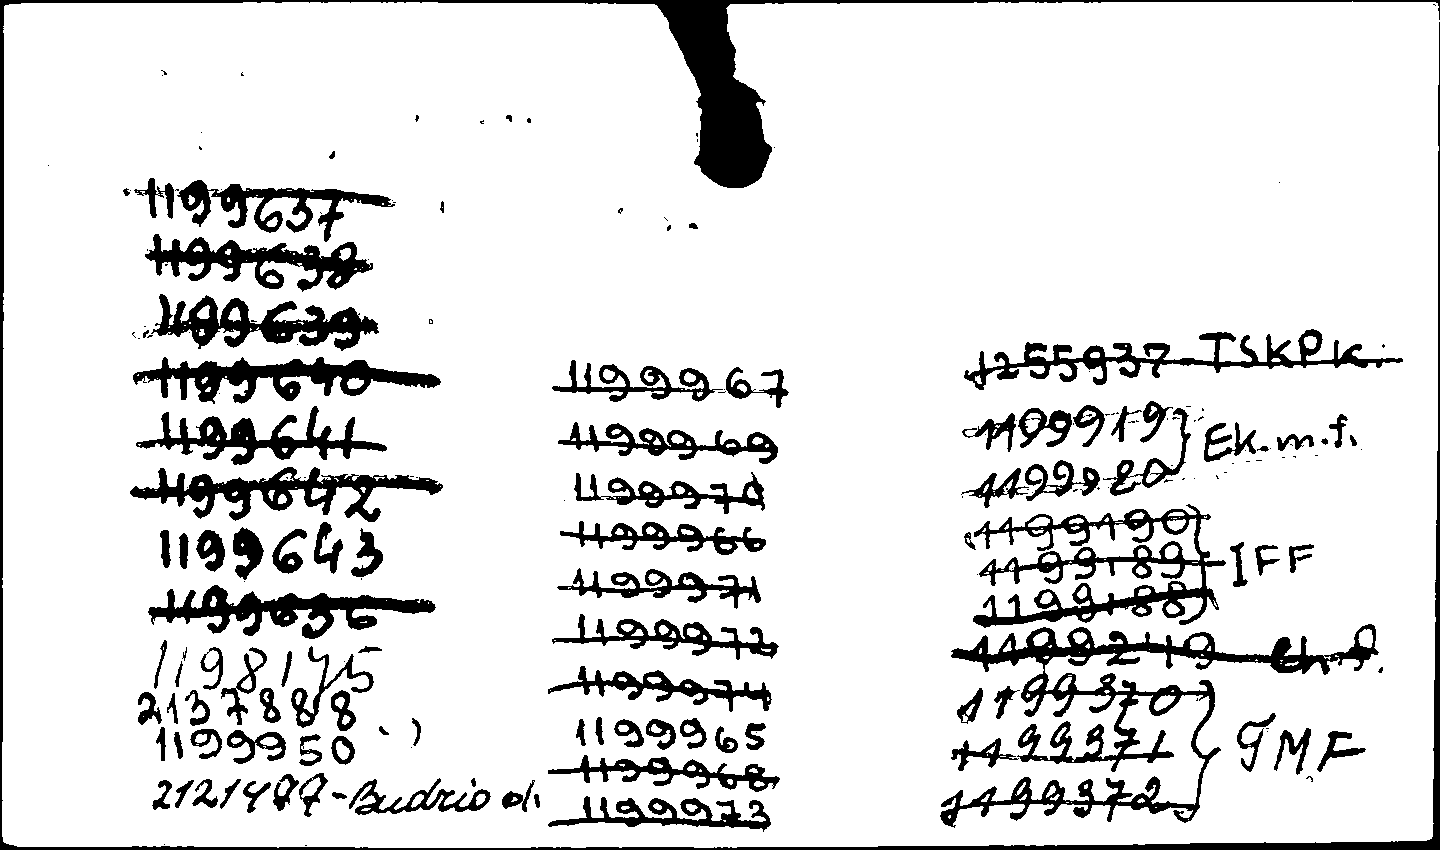 1199637
1199638
1199639
1199640
1199641
1199642
1199643
1199636
1198175
2137888
1199950
2121477-Budrio
1199967
1199969
1199970
1199966
1199971
1199972
1199974
1199965
1199968
1199973
1255937-TSKPK.
1199919
1199920
Ek.m.f.
1199190
1199189
1199188
IFF
1199219
1199370
1199371
1199372
TMF